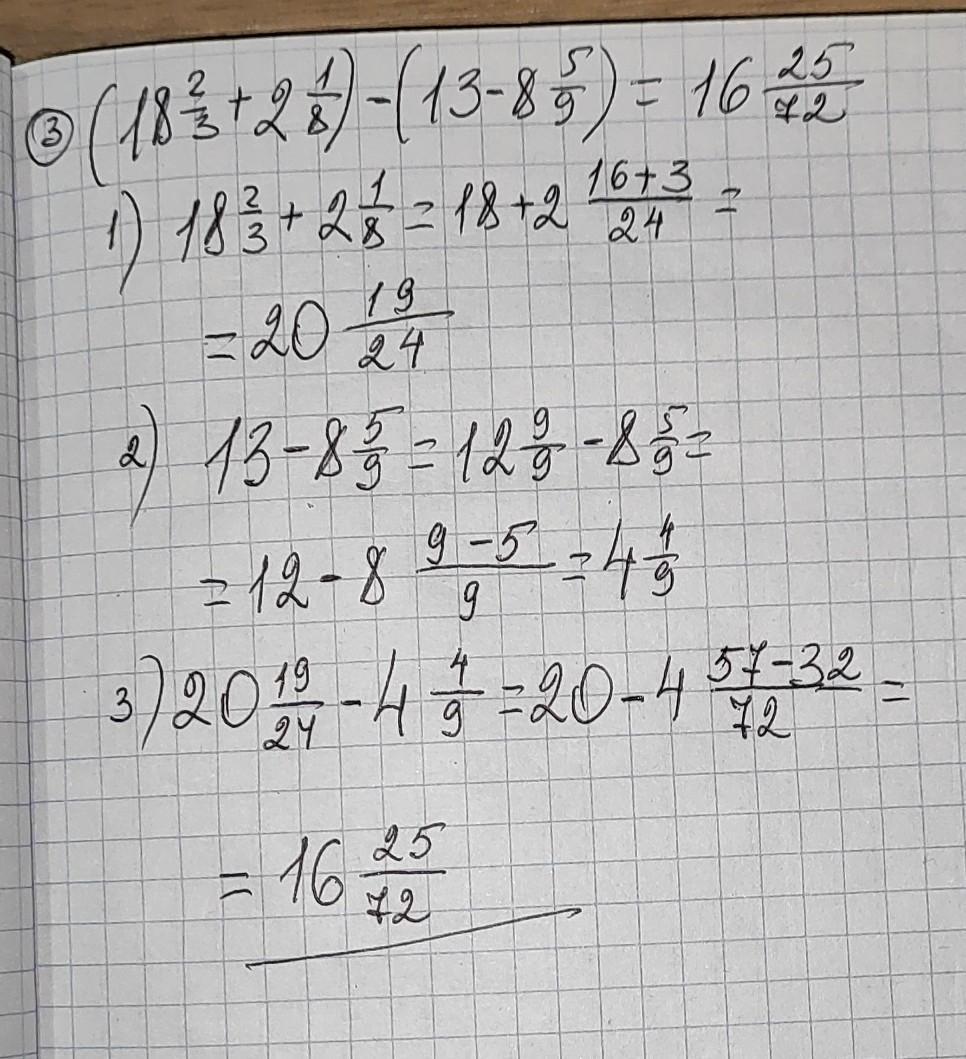 ③ (18 2/3 + 2 1/8) - (13 - 8 5/9) = 16 25/72
1) 18 2/3 + 2 1/8 = 18 + 2 (16+3)/24 =
= 20 19/24
2) 13 - 8 5/9 = 12 9/9 - 8 5/9 =
= 12 - 8 (9-5)/9 = 4 4/9
3) 20 19/24 - 4 4/9 = 20 - 4 (57-32)/72 =
= 16 25/72